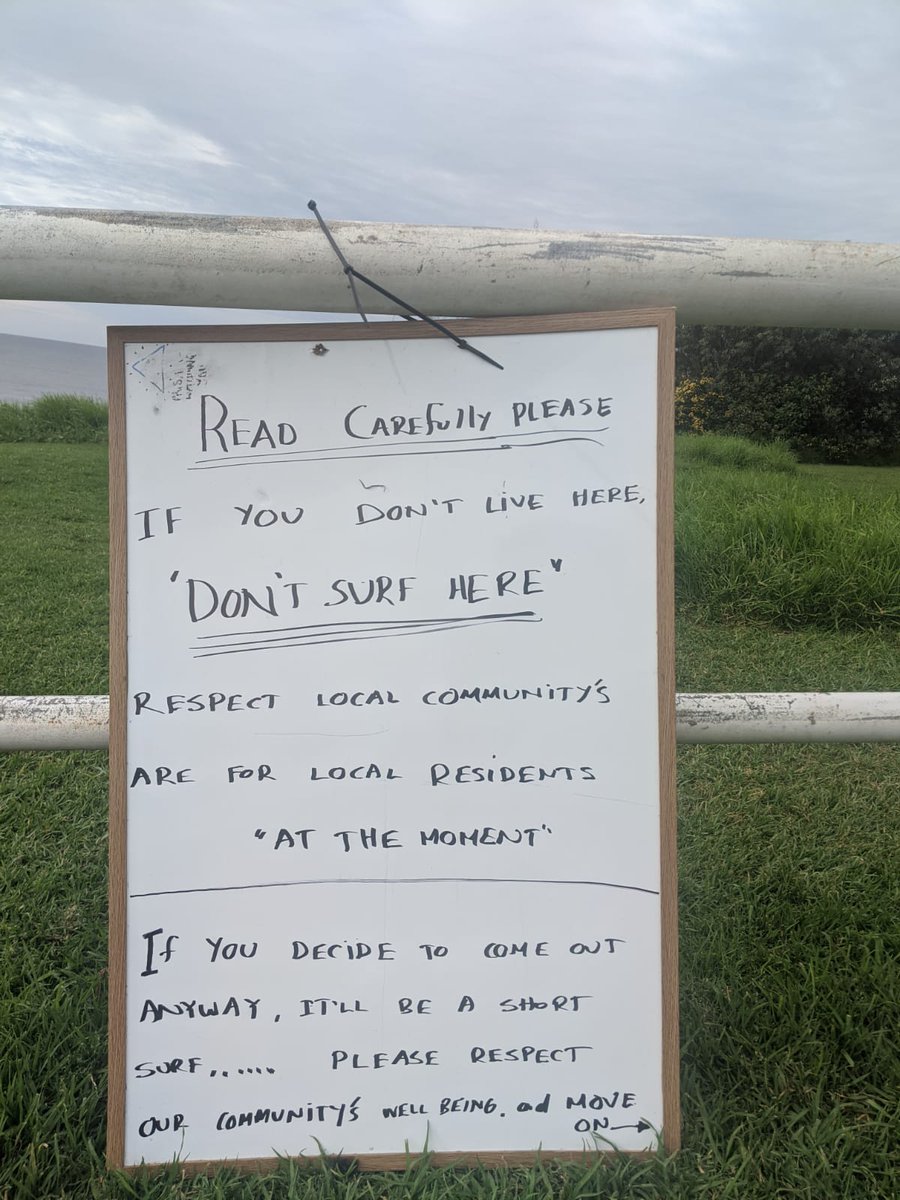 READ CAREfully PLEASE
IF YOU DON'T LIVE HERE,
'DON'T SURF HERE"
RESPECT LOCAL COMMUNITY'S
ARE FOR LOCAL RESIDENTS
"AT THE MOMENT"
If YOU DECIDE TO COME OUT
ANYWAY, IT'LL BE A SHORT
SURF...... PLEASE RESPECT
OUR COMMUNITY'S WELL BEING. and MOVE
ON→